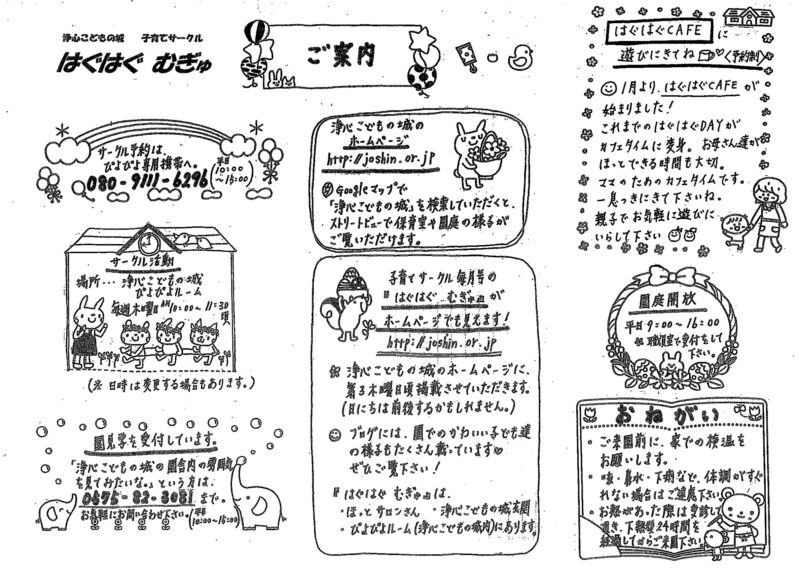 浄心こどもの城　子育てサークル
はぐはぐ むぎゅ
ご案内
サークル予約は、
ぴよぴよ専用携帯へ。
080-9111-6296 (平日 10:00～15:00)
サークル活動
場所… 浄心こどもの城
ぴよぴよルーム
毎週木曜日 AM10:00～11:30頃
(※ 日時は変更する場合もあります。)
園見学を受付しています。
「浄心こどもの城の園舎内の雰囲気
を見てみたいな。」という方は、
0575-82-3081 まで。
お気軽にお問い合わせ下さい。(平日 10:00～15:00)
浄心こどもの城の
ホームページ
http://joshin.or.jp
Googleマップで
「浄心こどもの城」を検索していただくと、
ストリートビューで保育室や園庭の様子が
ご覧いただけます。
子育てサークル毎月号の
『はぐはぐ むぎゅ』が
ホームページでも見えます!
http://joshin.or.jp
※ 浄心こどもの城のホームページに、
第3木曜日頃掲載させていただきます。
(日にちは前後するかもしれません。)
ブログには、園でのかわいい子ども達
の様子もたくさん載っています♡
ぜひご覧下さい!
『はぐはぐ むぎゅ』は、
・ほっとサロンさん ・浄心こどもの城玄関
・ぴよぴよルーム(浄心こどもの城内)にあります。
はぐはぐCAFEに
遊びにきてね♡〈予約制〉
1月より、はぐはぐCAFEが
始まりました!
これまでのはぐはぐDAYが
カフェタイムに変身。お母さん達が
ほっとできる時間も大切。
ママのためのカフェタイムです。
一息つきにきて下さいね。
親子でお気軽に遊びに
いらして下さい
園庭開放
平日 9:00～16:00
※ 職員室で受付をして
下さいね。
おねがい
・ご来園前に、家での検温を
お願いします。
・咳・鼻水・下痢など、体調がすぐ
れない場合はご遠慮下さい。
・お熱があった際は受診して
頂き、下熱後24時間を
経過してからご来園下さい。